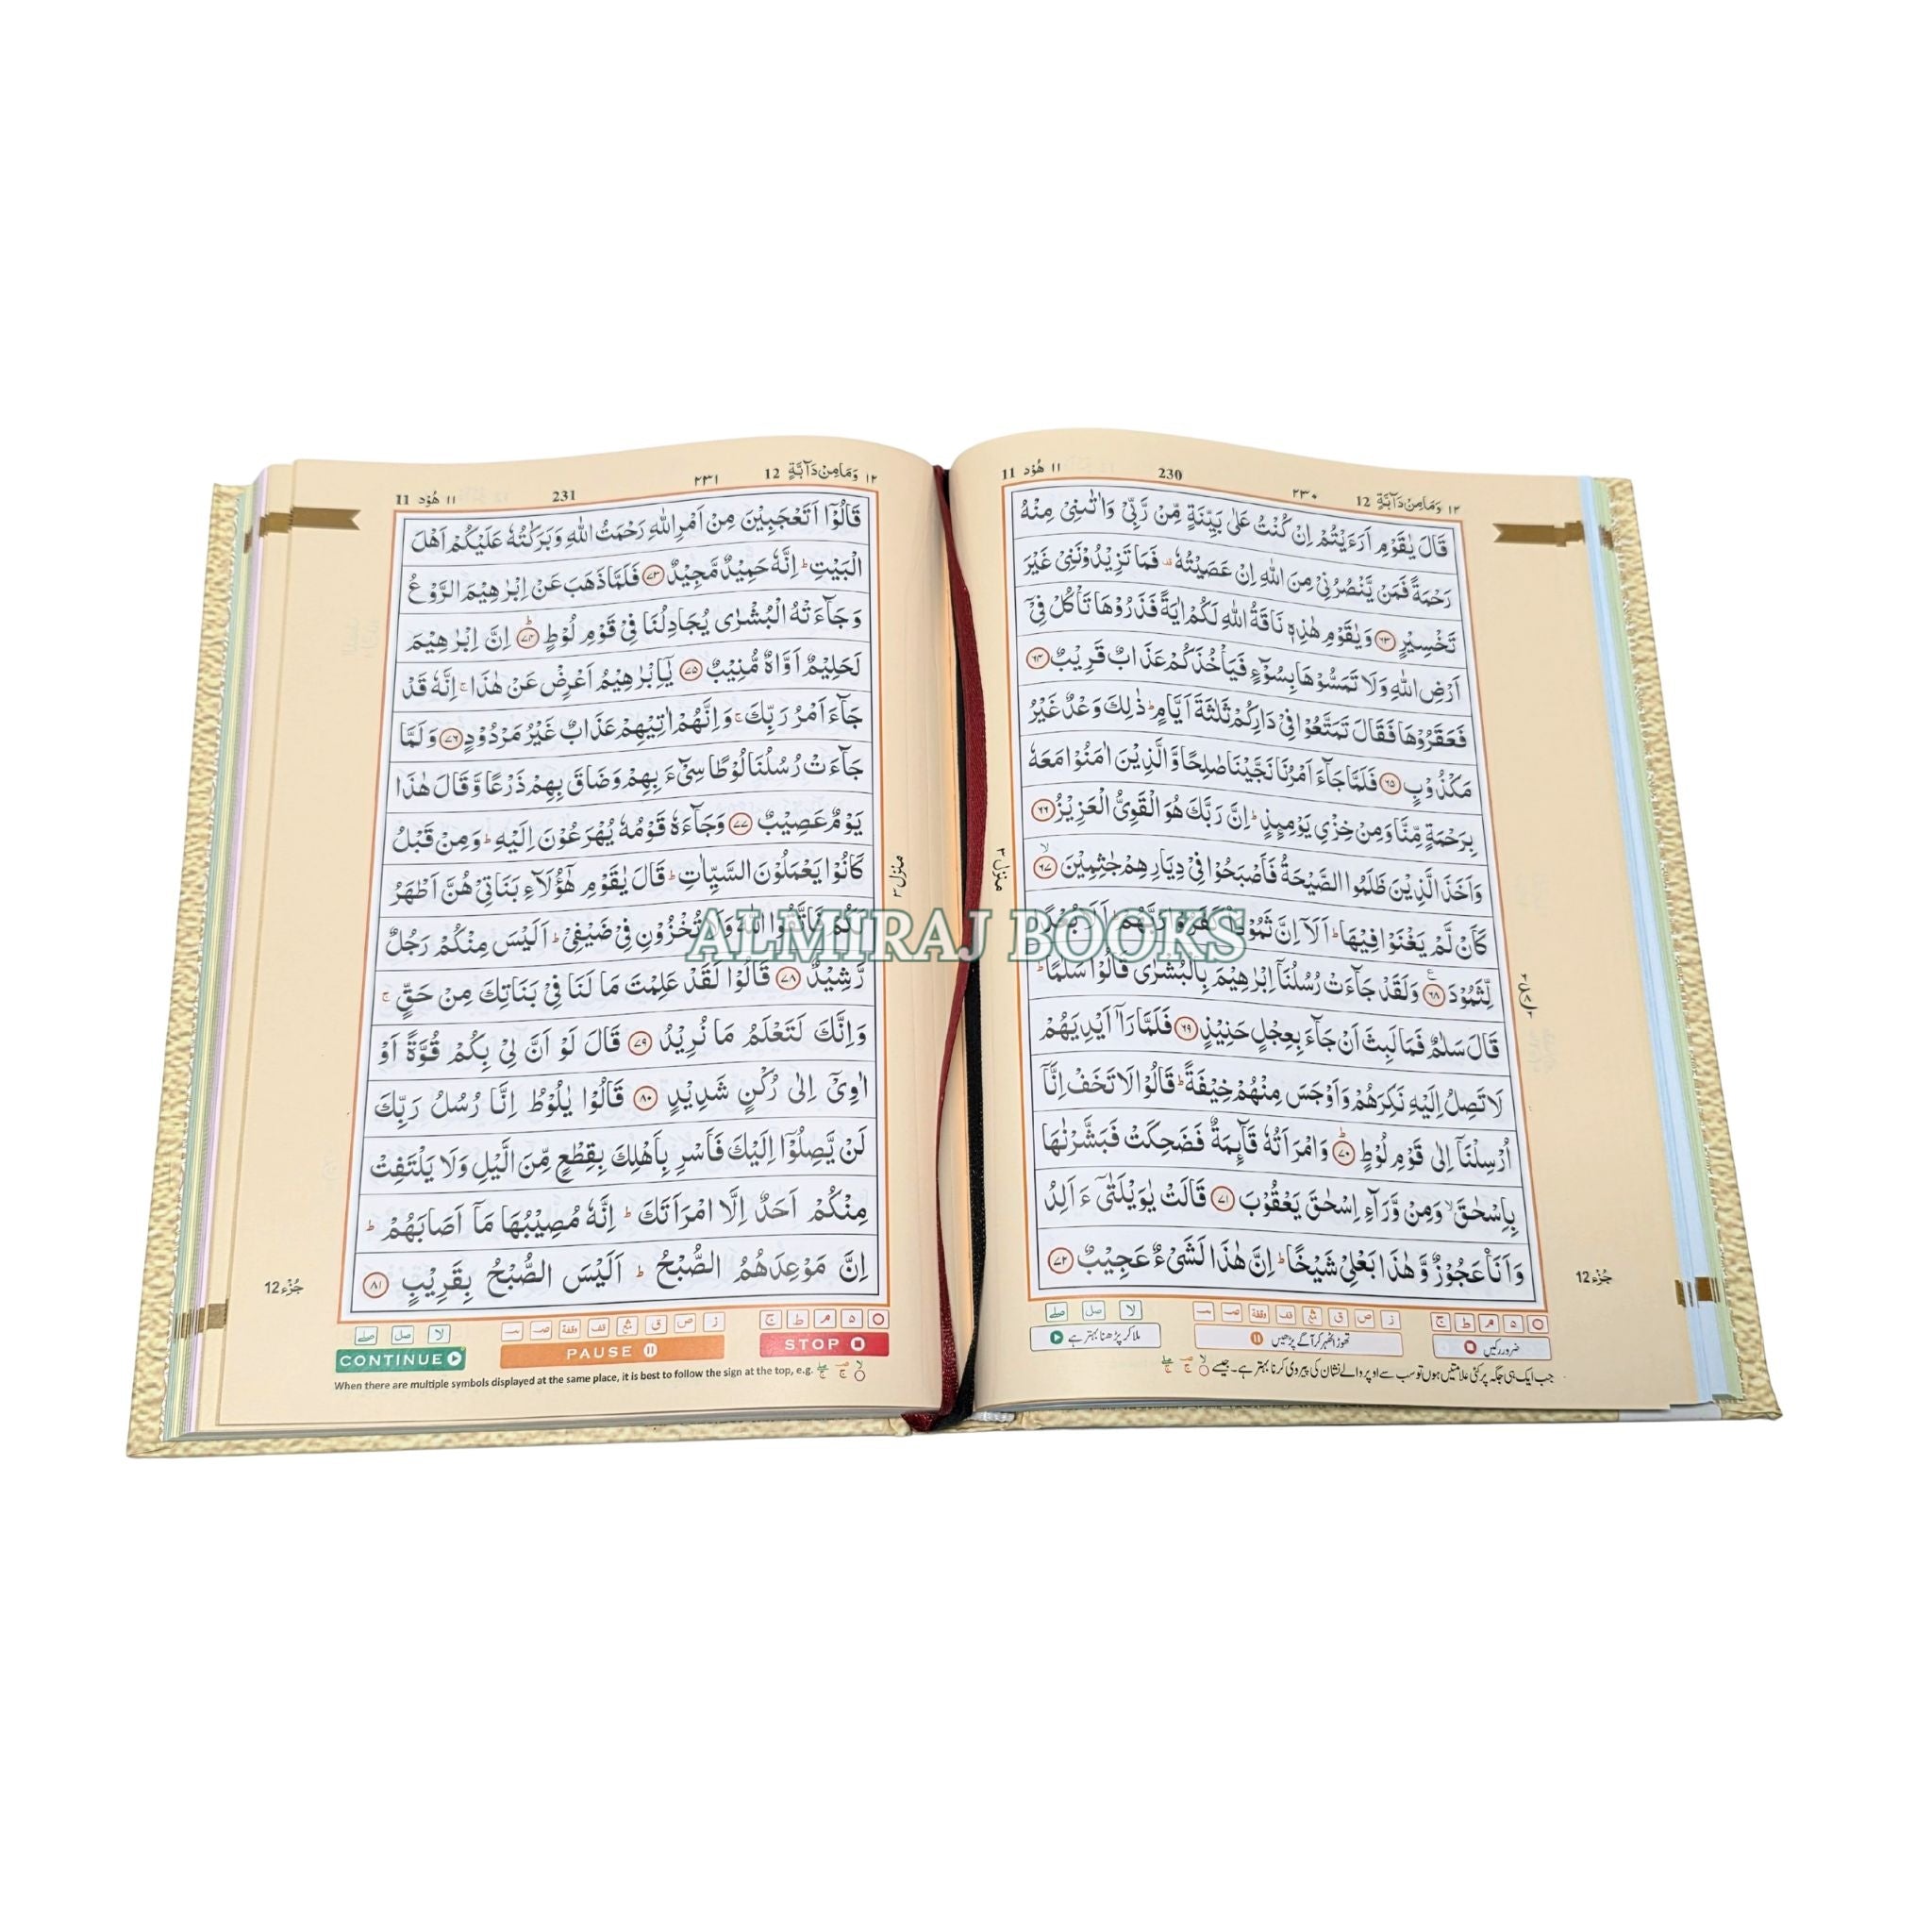 ۱۱ هُوْد 11
230
۲۳۰
۱۲ وَمَا مِنْ دَآبَّةٍ 12
قَالَ يٰقَوْمِ اَرَءَيْتُمْ اِنْ كُنْتُ عَلٰى بَيِّنَةٍ مِّنْ رَّبِّىْ وَاٰتٰىنِىْ مِنْهُ
رَحْمَةً فَمَنْ يَّنْصُرُنِىْ مِنَ اللّٰهِ اِنْ عَصَيْتُهٗ ۚ فَمَا تَزِيْدُوْنَنِىْ غَيْرَ
تَخْسِيْرٍ ۶۳ وَيٰقَوْمِ هٰذِهٖ نَاقَةُ اللّٰهِ لَكُمْ اٰيَةً فَذَرُوْهَا تَاْكُلْ فِىْۤ
اَرْضِ اللّٰهِ وَلَا تَمَسُّوْهَا بِسُوْٓءٍ فَيَاْخُذَكُمْ عَذَابٌ قَرِيْبٌ ۶۴
فَعَقَرُوْهَا فَقَالَ تَمَتَّعُوْا فِىْ دَارِكُمْ ثَلٰثَةَ اَيَّامٍ ؕ ذٰلِكَ وَعْدٌ غَيْرُ
مَكْذُوْبٍ ۶۵ فَلَمَّا جَآءَ اَمْرُنَا نَجَّيْنَا صٰلِحًا وَّالَّذِيْنَ اٰمَنُوْا مَعَهٗ
بِرَحْمَةٍ مِّنَّا وَمِنْ خِزْىِ يَوْمِئِذٍ ؕ اِنَّ رَبَّكَ هُوَ الْقَوِىُّ الْعَزِيْزُ ۶۶
وَاَخَذَ الَّذِيْنَ ظَلَمُوا الصَّيْحَةُ فَاَصْبَحُوْا فِىْ دِيَارِهِمْ جٰثِمِيْنَ ۶۷
كَاَنْ لَّمْ يَغْنَوْا فِيْهَا ؕ اَلَاۤ اِنَّ ثَمُوْدَا۟ كَفَرُوْا رَبَّهُمْ ؕ اَلَا بُعْدًا
لِّثَمُوْدَ ۶۸ وَلَقَدْ جَآءَتْ رُسُلُنَاۤ اِبْرٰهِيْمَ بِالْبُشْرٰى قَالُوْا سَلٰمًا ؕ
قَالَ سَلٰمٌ فَمَا لَبِثَ اَنْ جَآءَ بِعِجْلٍ حَنِيْذٍ ۶۹ فَلَمَّا رَاٰۤ اَيْدِيَهُمْ
لَا تَصِلُ اِلَيْهِ نَكِرَهُمْ وَاَوْجَسَ مِنْهُمْ خِيْفَةً ؕ قَالُوْا لَا تَخَفْ اِنَّاۤ
اُرْسِلْنَاۤ اِلٰى قَوْمِ لُوْطٍ ۷۰ وَامْرَاَتُهٗ قَآئِمَةٌ فَضَحِكَتْ فَبَشَّرْنٰهَا
بِاِسْحٰقَ ۙ وَمِنْ وَّرَآءِ اِسْحٰقَ يَعْقُوْبَ ۷۱ قَالَتْ يٰوَيْلَتٰٓى ءَاَلِدُ
وَاَنَا۠ عَجُوْزٌ وَّهٰذَا بَعْلِىْ شَيْخًا ؕ اِنَّ هٰذَا لَشَىْءٌ عَجِيْبٌ ۷۲
منزل ۳
جُزْء 12
○ ۵ مـ ط ج
ز ص ق قف وقفة
لا صل صلے
ضرور رکیں
تھوڑا ٹھہر کر آگے پڑھیں
ملا کر پڑھنا بہتر ہے
جب ایک ہی جگہ پر کئی علامتیں ہوں تو سب سے اوپر والے نشان کی پیروی کرنا بہتر ہے۔ جیسے
۱۱ هُوْد 11
231
۲۳۱
۱۲ وَمَا مِنْ دَآبَّةٍ 12
قَالُوْۤا اَتَعْجَبِيْنَ مِنْ اَمْرِ اللّٰهِ رَحْمَتُ اللّٰهِ وَبَرَكٰتُهٗ عَلَيْكُمْ اَهْلَ
الْبَيْتِ ؕ اِنَّهٗ حَمِيْدٌ مَّجِيْدٌ ۷۳ فَلَمَّا ذَهَبَ عَنْ اِبْرٰهِيْمَ الرَّوْعُ
وَجَآءَتْهُ الْبُشْرٰى يُجَادِلُنَا فِىْ قَوْمِ لُوْطٍ ۷۴ اِنَّ اِبْرٰهِيْمَ
لَحَلِيْمٌ اَوَّاهٌ مُّنِيْبٌ ۷۵ يٰۤاِبْرٰهِيْمُ اَعْرِضْ عَنْ هٰذَا ۚ اِنَّهٗ قَدْ
جَآءَ اَمْرُ رَبِّكَ ۚ وَاِنَّهُمْ اٰتِيْهِمْ عَذَابٌ غَيْرُ مَرْدُوْدٍ ۷۶ وَلَمَّا
جَآءَتْ رُسُلُنَا لُوْطًا سِىْٓءَ بِهِمْ وَضَاقَ بِهِمْ ذَرْعًا وَّقَالَ هٰذَا
يَوْمٌ عَصِيْبٌ ۷۷ وَجَآءَهٗ قَوْمُهٗ يُهْرَعُوْنَ اِلَيْهِ ؕ وَمِنْ قَبْلُ
كَانُوْا يَعْمَلُوْنَ السَّيِّاٰتِ ؕ قَالَ يٰقَوْمِ هٰٓؤُلَآءِ بَنَاتِىْ هُنَّ اَطْهَرُ
لَكُمْ فَاتَّقُوا اللّٰهَ وَلَا تُخْزُوْنِ فِىْ ضَيْفِىْ ؕ اَلَيْسَ مِنْكُمْ رَجُلٌ
رَّشِيْدٌ ۷۸ قَالُوْا لَقَدْ عَلِمْتَ مَا لَنَا فِىْ بَنَاتِكَ مِنْ حَقٍّ ۚ
وَاِنَّكَ لَتَعْلَمُ مَا نُرِيْدُ ۷۹ قَالَ لَوْ اَنَّ لِىْ بِكُمْ قُوَّةً اَوْ
اٰوِىْۤ اِلٰى رُكْنٍ شَدِيْدٍ ۸۰ قَالُوْا يٰلُوْطُ اِنَّا رُسُلُ رَبِّكَ
لَنْ يَّصِلُوْۤا اِلَيْكَ فَاَسْرِ بِاَهْلِكَ بِقِطْعٍ مِّنَ الَّيْلِ وَلَا يَلْتَفِتْ
مِنْكُمْ اَحَدٌ اِلَّا امْرَاَتَكَ ؕ اِنَّهٗ مُصِيْبُهَا مَاۤ اَصَابَهُمْ ؕ
اِنَّ مَوْعِدَهُمُ الصُّبْحُ ؕ اَلَيْسَ الصُّبْحُ بِقَرِيْبٍ ۸۱
منزل ۳
جُزْء 12
○ ۵ مـ ط ج
ز ص ق قف وقفة
لا صل صلے
CONTINUE
PAUSE
STOP
When there are multiple symbols displayed at the same place, it is best to follow the sign at the top, e.g.
ALMIRAJ BOOKS